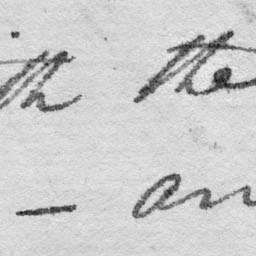 ith the
- an